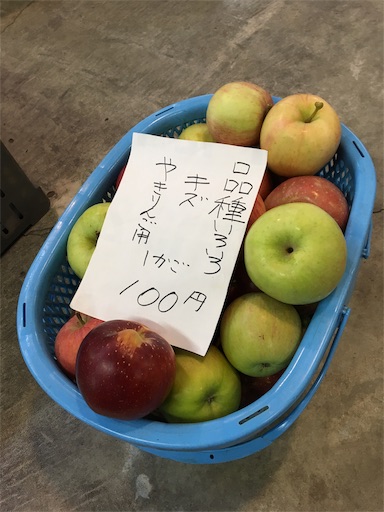 品種いろいろ
キズ
やきりんご用
1かご
100円